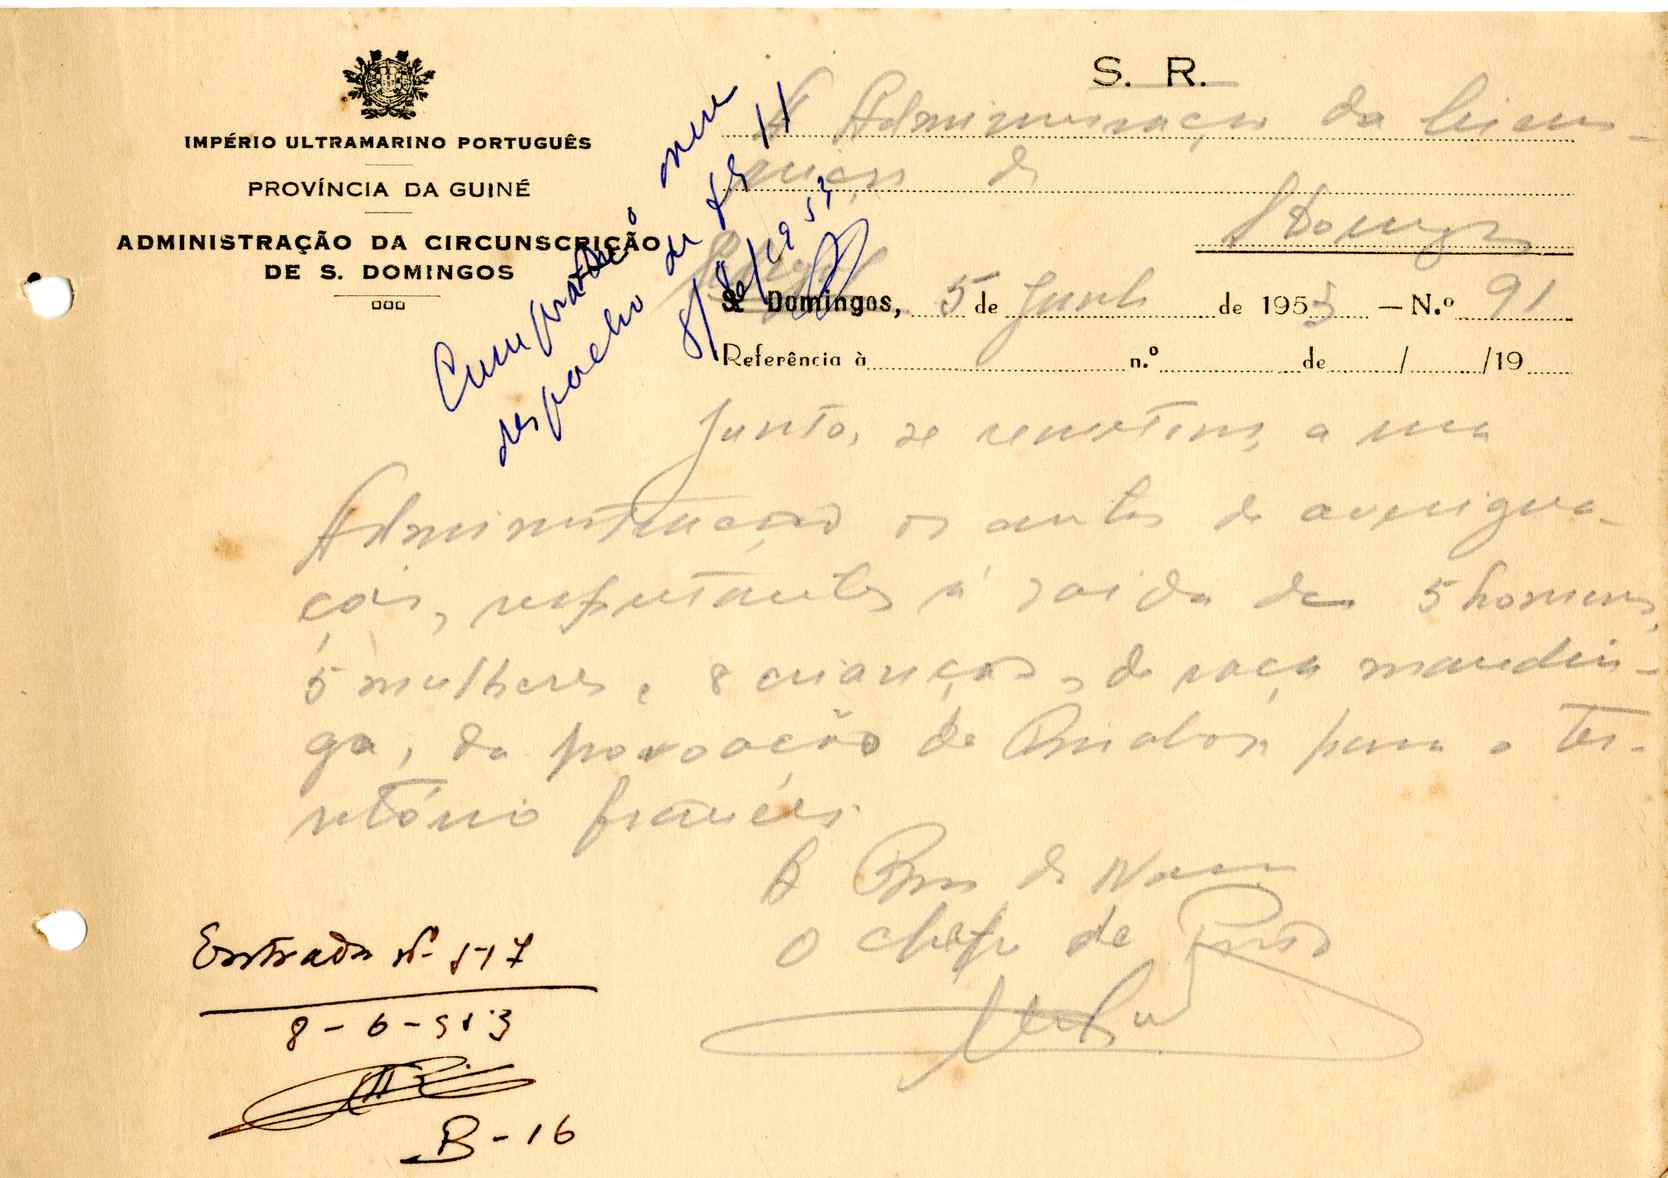 IMPÉRIO ULTRAMARINO PORTUGUÊS
PROVÍNCIA DA GUINÉ
ADMINISTRAÇÃO DA CIRCUNSCRIÇÃO
DE S. DOMINGOS
S. R.
A Administração da Circuns-
crição de
S. Domingos
S. Domingos, 5 de Junho de 1953 — N.º 91
Referência à n.º de / /19
Cumprado o meu
despacho de fs 11
8/6/1953
Junto, se remetem, a essa
Administração os autos de averigua-
ções, respeitantes à saida de 5 homens,
5 mulheres e 8 crianças, de raça mandin-
ga, da povoação de para o ter-
ritório francês.
A Bem da Nação
O chefe de Posto
Entrada Nº 517
8-6-953
B-16